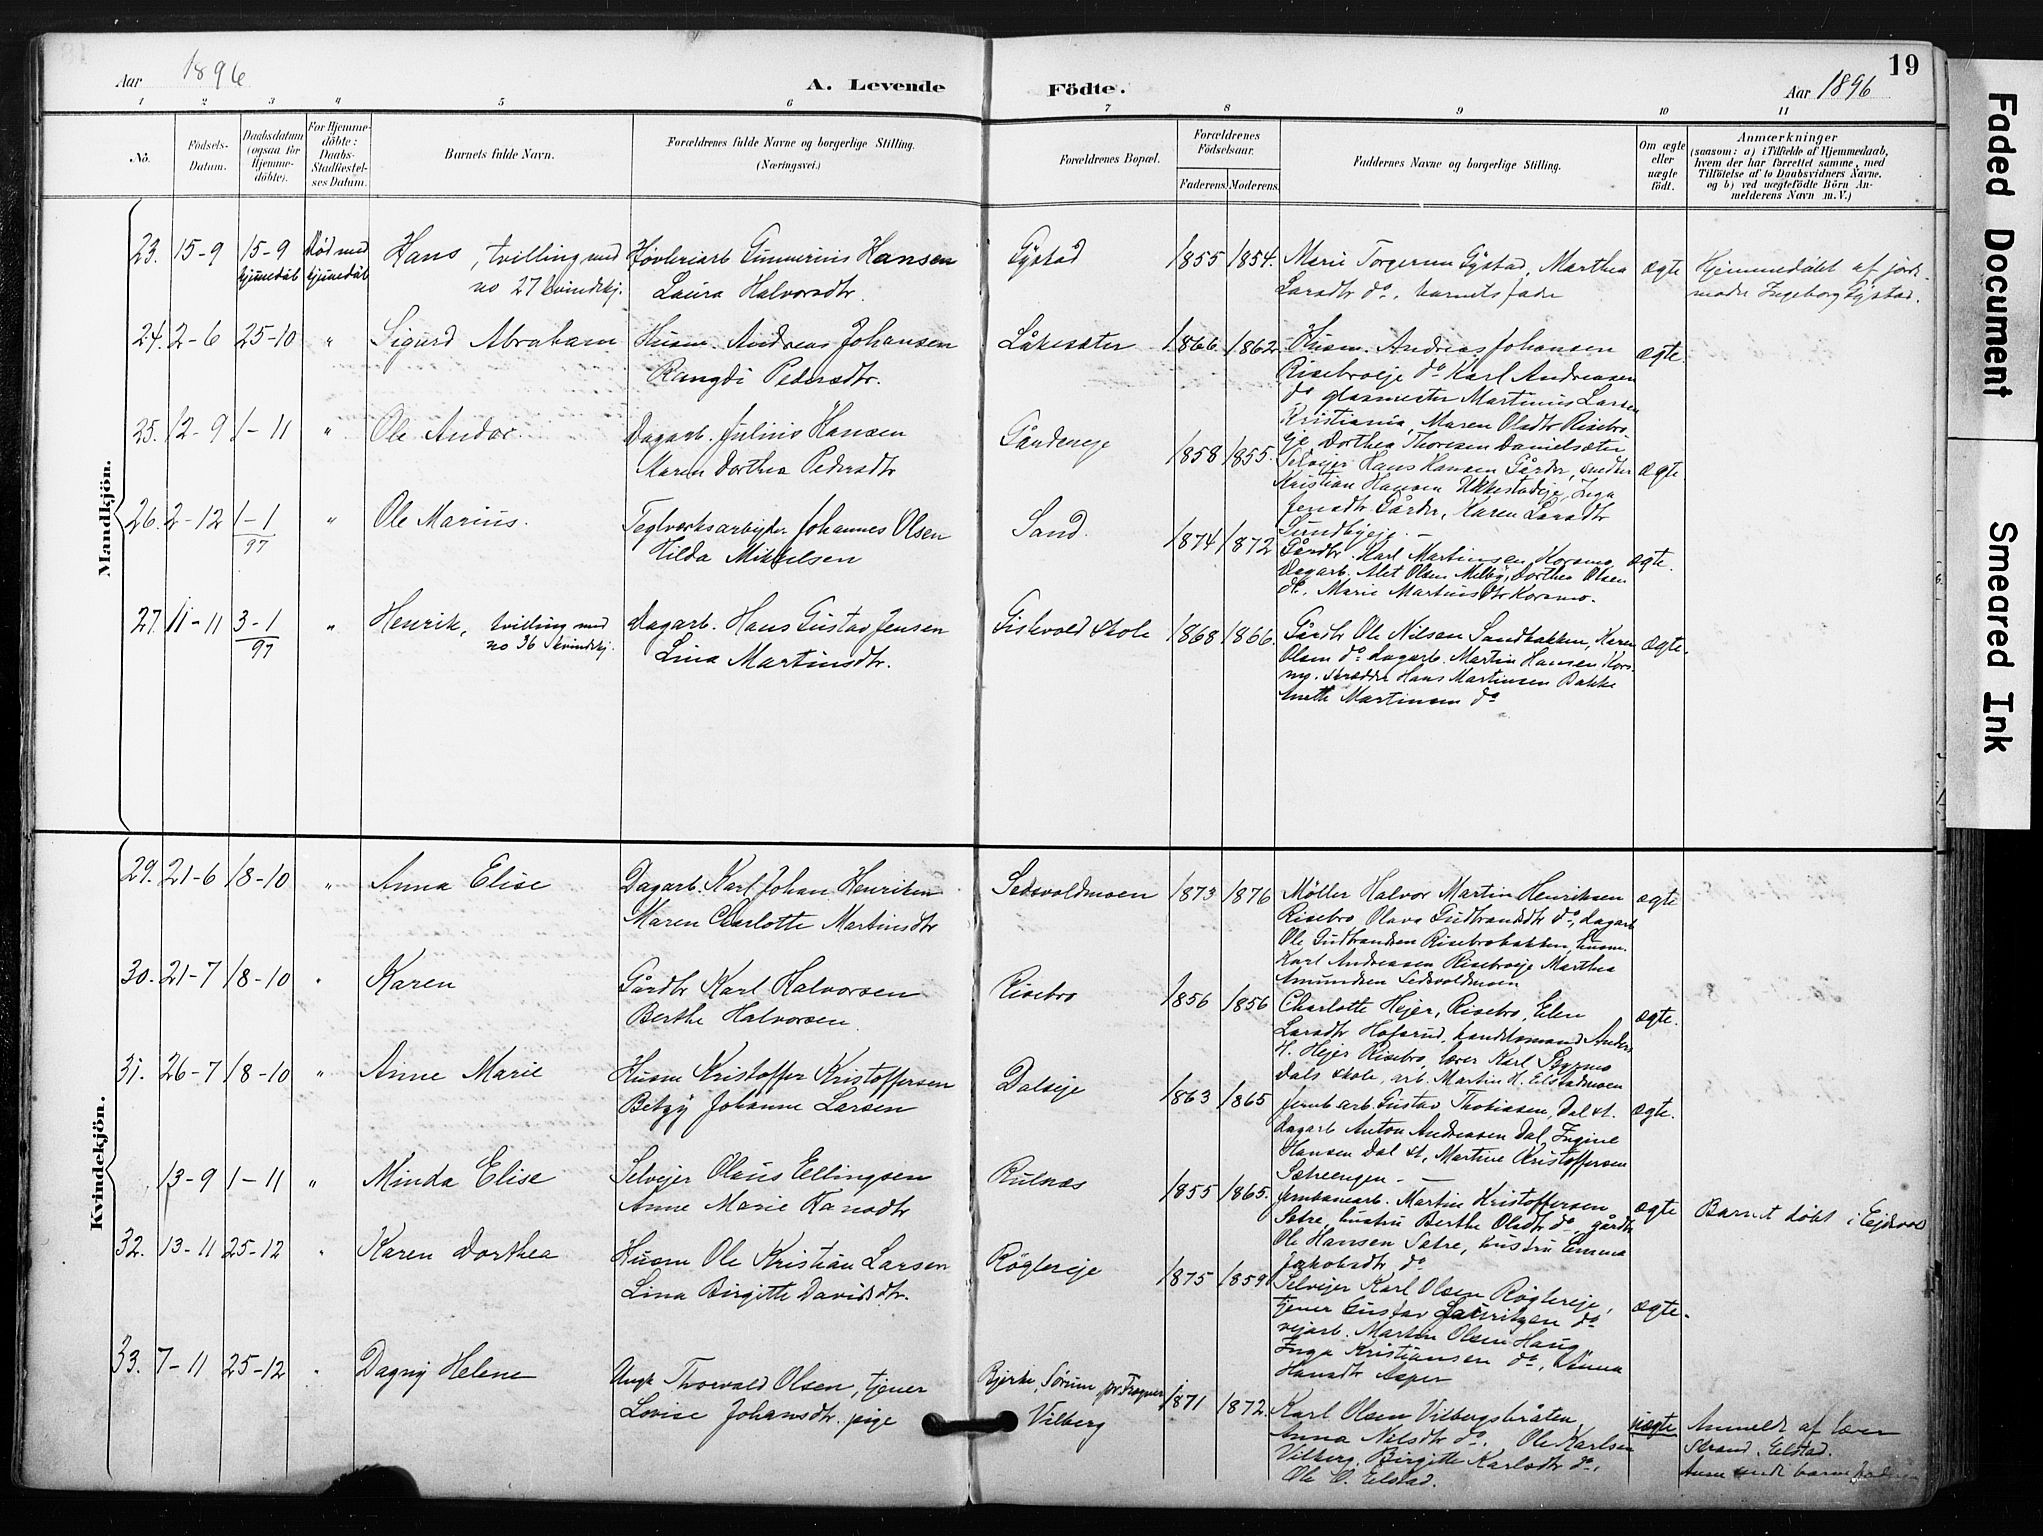 Aar 1896
A. Levende Födte.
Aar 1896
19
1 2 3 4 5 6 7 8 9 10 11
No.
Födsels-Datum.
Daabsdatum (ogsaa for Hjemmedöbte).
For Hjemmedöbte: Daabs-Stadfæstelses Datum.
Barnets fulde Navn.
Forældrenes fulde Navne og borgerlige Stilling. (Næringsvei.)
Forældrenes Bopæl.
Forældrenes Födselsaar.
Faderens. Moderens.
Faddernes Navne og borgerlige Stilling.
Om ægte eller uægte födt.
Anmærkninger
(saasom: a) i Tilfælde af Hjemmedaab,
hvem der har forrettet samme, med
Tilföielse af to Daabsvidners Navne.
og b) ved uægtefödte Börn An-
melderens Navn m. V.)
Mandkjön.
23. 15-9 15-9 hjemmedåb Død med hjemmedåb
Hans, tvilling med no 27 kvindekj.
Høvleriarb Gunnerius Hansen
Laura Halvorsdtr.
Gystad
1855 1854.
Marie Torgersen Gystad, Marthea
Larsdtr do, barnets fader
ægte
Hjemmedøbt af jord-
moder Ingeborg Gystad.
24. 2-6 25-10 "
Sigurd Abraham
Husm. Andreas Johansen
Rangdi Pedersdtr.
Låkesæter
1866 1862
Husm. Andreas Johansen
Risebroeje do Karl Andreasen
do glasmester Martinius Larsen
Kristiania, Maren Olsdtr Risebro
eje, Dorthea Thoresen Danielsæter
ægte.
25. 12-9 1-11 "
Ole Andor.
Dagarb. Julius Hansen
Maren Dorthea Pedersdtr
Gårdereje
1858 1855.
Selvejer Hans Hansen Gårder, snedker
Kristian Hansen Ukkestadeje, Inga
Jensdtr Gårder, Karen Larsdtr
Sundbyeje. -
ægte
26. 2-12 1-1 97 "
Ole Marius.
Teglværksarbejder Johannes Olsen
Hilda Mikkelsen
Sand.
1874 1872
Gårdbr. Karl Martinsen Korsmo
Dagarb. Alet Olsen Melby, Dorthea Olsen
do, Marie Martinsdtr Korsmo.
ægte.
27. 11-11 3-1 97 "
Henrik, tvilling med no 36 kvindekj.
Dagarb. Hans Gustav Jensen
Lina Martinsdtr.
Gislevold skole
1868 1866.
Gårdbr Ole Nilsen Sandbakken, Karen
Olsen do dagarb. Martin Hansen Kors-
mo. skrædder Hans Martinsen Bakke
Anette Martinsen do
ægte.
Kvindekjön.
29. 21-6 18-10 "
Anna Elise
Dagarb. Karl Johan Henriksen
Maren Charlotte Martinsdtr
Sedsvoldmoen
1873 1876
Møller Halvor Martin Henriksen
Risebro Olava Gudbrandsdtr do, dagarb
Ole Gudbrandsen Risebrobakken, husm.
Karl Andreasen Risebroeje Marthea
Amundsen Sedsvoldmoen
ægte
30. 21-7 18-10 "
Karen
Gårdbr Karl Halvorsen
Berthe Halvorsen
Risebro
1856 1856
Charlotte Hejer, Risebro, Elen
Larsdtr Hofsrud, handelsmand Anders
H. Hejer Risebro, lærer Karl
Dals skole, arb. Martin H. Eilstadmoen
ægte.
31. 26-7 18-10 "
Anne Marie
Husm Kristoffer Kristoffersen
Betzy Johanne Larsen
Daleje
1863 1865
Jernb arb Gustav Thobiasen, Dal st.
dagarb Anton Andreasen Dal, Ingine
Hansen Dal st, Martine Kristoffersen
Sætreengen -
ægte.
13-9 1-11 "
Minda Elise
Selvejer Olaus Ellingsen
Anne Marie Hansdtr
Rulnæs
1855 1865.
Jernbanearb. Martin Kristoffersen
Sætre, hustru Berthe Olsdtr do gårdbr
Ole Hansen Sætre, hustru Emma
Jakobsdtr do
ægte
Barnet døbt i Ejdsvold
32. 13-11 25-12 "
Karen Dorthea
Husm Ole Kristian Larsen
Lina Birgitte Davidsdtr.
Røglereje
1875 1859
Selvejer Karl Olsen Røglereje,
tjener Gustav Lauritzen do
vejarb. Martin Olsen Haug
Inga Kristiansen do, Anna
Hansdtr Asper
ægte.
33. 7-11 25-12 "
Dagny Helene
Ungk Thorvald Olsen, tjener
Lovise Johansdtr. pige
Bjerke, Sørum, pr Frogner
Vilberg
1871 1872.
Karl Olsen Vilbergsbråten,
Anna Nilsdtr do. Ole Karlsen
Vilberg, Birgitte Karlsdtr do,
Ole O. Eilstad.
uægte
Anmeldt af lærer
Strand, Eilstad.
Faded Document
Smeared Ink